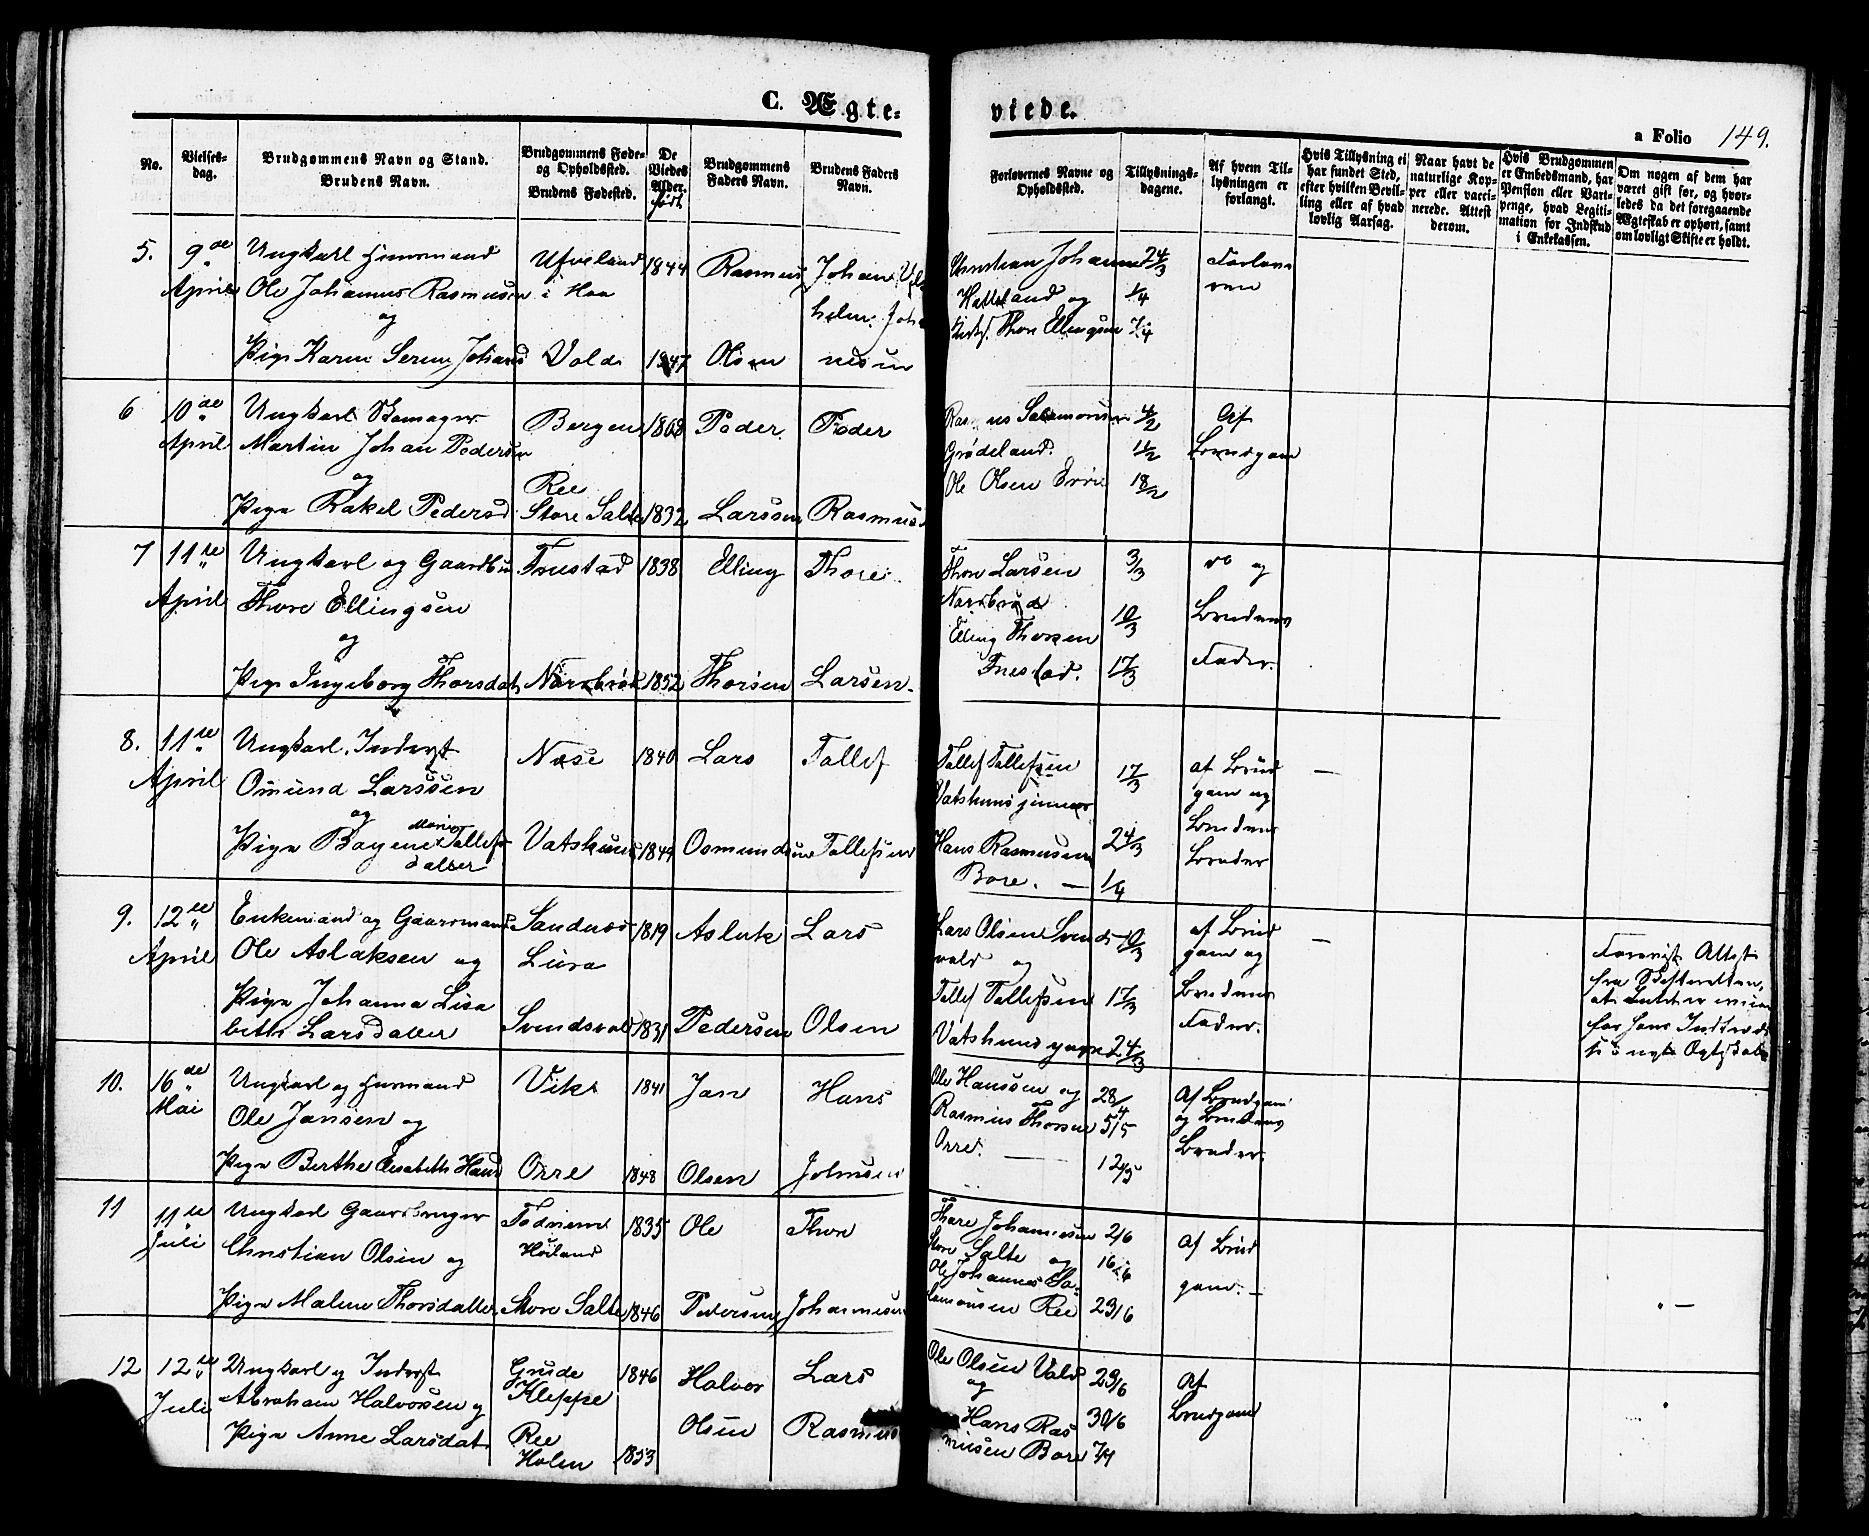 C. Ægte-
viede.
a Folio 149.
No.
Vielses-
dag.
Brudgommens Navn og Stand.
Brudens Navn.
Brudgommens Føde-
og Opholdssted.
Brudens Fødested.
De
Viedes
Alder.
født
Brudgommens
Faders Navn.
Brudens Faders
Navn.
Forlovernes Navne og
Opholdssted.
Tillysnings-
dagene.
Af hvem Til-
lysningen er
forlangt.
Hvis Tillysning ei
har fundet Sted,
efter hvilken Bevil-
ling eller af hvad
lovlig Aarsag.
Naar havt de
naturlige Kop-
per eller vacci-
nerede. Attest
derom.
Hvis Brudgommen
er Embedsmand, har
Pension eller Vart-
penge, hvad Legiti-
mation for Indskud
i Enkekassen.
Om nogen af dem har
været gift før, og hvor-
ledes da det foregaaende
Ægteskab er ophørt, samt
om lovligt Skifte er holdt.
5. 9de Ungkarl Huusmand 1844 Rasmus Johan
April Ole Johannes Rasmussen i Haa
og
Pige Karen Serine Vold 1847 Olsen nesen
Christian Johannes 24/3
Hatteland og 1/4
Thore Ellingsen 7/4
6 10de Ungkarl Bergen 1808 Peder Peder
April Martin Johan Pedersen
og Ree
Pige Rakel Pedersd Store Salte 1832 Larssen Rasmus
Salamonsen 4/2 Af
Grødeland. 11/2 Brudgom
Ole Olsen 18/2
7 11te Ungkarl og Gaardbr 1838 Elling Thore
April Thore Ellingsen
og
Pige Ingeborg Thorsdat 1852 Thorsen Larsen
Thore Larsen 3/3 do og
10/3 Brudens
Elling Thorsen
17/3 Fader.
8. 11te Ungkarl. Inderst Næse 1840 Lars Tollef
April Omund Larssen
og
Pige Tollefs Vatshuus 1844 Osmundsen Tollefsen
datter
Tollef Tollefsen 17/3 af Brud —
gom og
Hans Rasmussen 24/3 Brudens
Bore. — 1/4 Broder
9. 12te Enkemand og Gaardmand Sandnes 1819 Aslak Lars
April Ole Aslaksen og Lura
Pige Johanna Lisa
beth Larsdatter Svendsvold 1831 Pedersen Olsen
Lars Olsen Svends 10/3 af Brud —
vold og gom og
Tollef Tollefsen 17/3 Brudens
24/3 Fader.
Forevist Attest
fra Skifteretten,
at Intet er iveien
for hans Indtræde
i nyt Ægteskab
10. 16de Ungkarl og Huusmand Vik 1841 Jan Hans
Mai Ole Jansen og
Pige Berthe Elisabeth Hans Orre 1848 Olsen Johnsen
Ole Hanssen og 28/4 Af Brudgom
Rasmus Thorsen 5/5 og Brudens
Orre. — 12/5 Broder.
11 11te Ungkarl Gaardbruger 1835 Ole Thore
Juli Christian Olsen og Høiland
Pige Malene Thorsdatter Store Salte 1846 Pedersen Johannesen
Thore Johannesen 2/6 Af Brud
Store Salte og 16/6 gom. —
Ole Johannes Sa-
lamonsen Ree 23/6
12 12te Ungkarl og Inderst Grude 1846 Halvor Lars
Juli Abraham Halvorsen og Kleppe
Pige Anne Larsdat Ree Olsen Rasmus
Holen 1853
Ole Olsen Vold 23/6 Af
og Brudgom
Hans Ras 30/6
mussen Bore 7/7